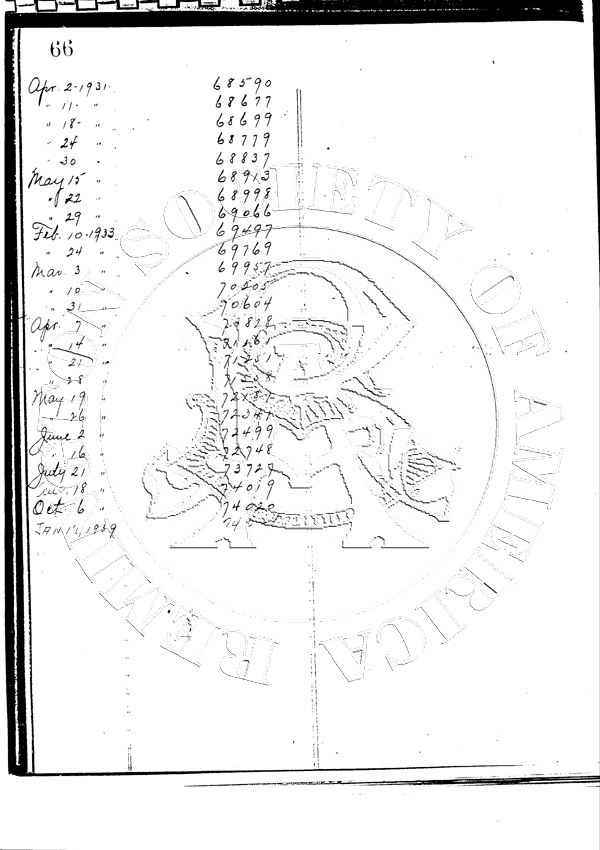 66
Apr. 2-1931. 68590
" 11- " 68677
" 18- " 68699
" 24 " 68779
" 30 " 68837
May 15 " 68913
" 22 " 68998
" 29 " 69066
Feb. 10-1933 69497
" 24 " 69769
Mar. 3 " 69957
" 10 " 70205
" 31 " 70604
Apr. 7 " 70828
" 14 "
" 21 "
" 28 "
May 19 "
" 26 "
June 2 " 72499
" 16 " 72748
July 21 " 73727
18 " 74019
Oct. 6 " 74020
JAN
REMINGTON SOCIETY OF AMERICA